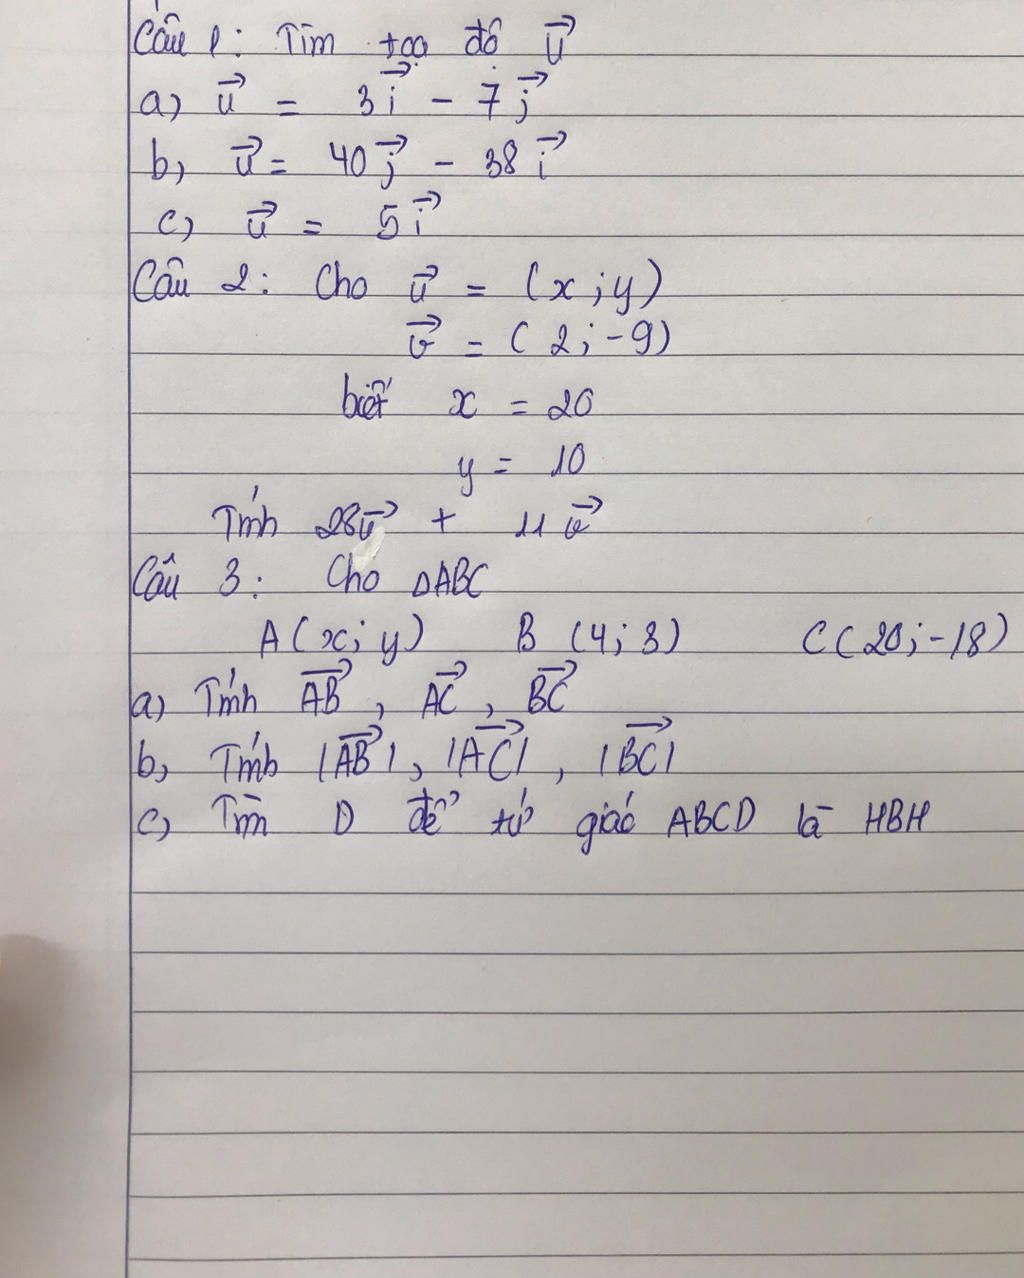 Câu 1: Tìm tọa độ \vec{u}
a) \vec{u} = 3\vec{i} - 7\vec{j}
b, \vec{u} = 40\vec{j} - 38\vec{i}
c) \vec{u} = 5\vec{i}
Câu 2: Cho \vec{u} = (x;y)
\vec{v} = (2;-9)
biết x = 20
y = 10
Tính 28\vec{u} + 11\vec{v}
Câu 3: Cho ΔABC
A(x;y) B (4;3) C(20;-18)
a) Tính \vec{AB}, \vec{AC}, \vec{BC}
b, Tính |\vec{AB}|, |\vec{AC}|, |\vec{BC}|
c, Tìm D để tứ giác ABCD là HBH